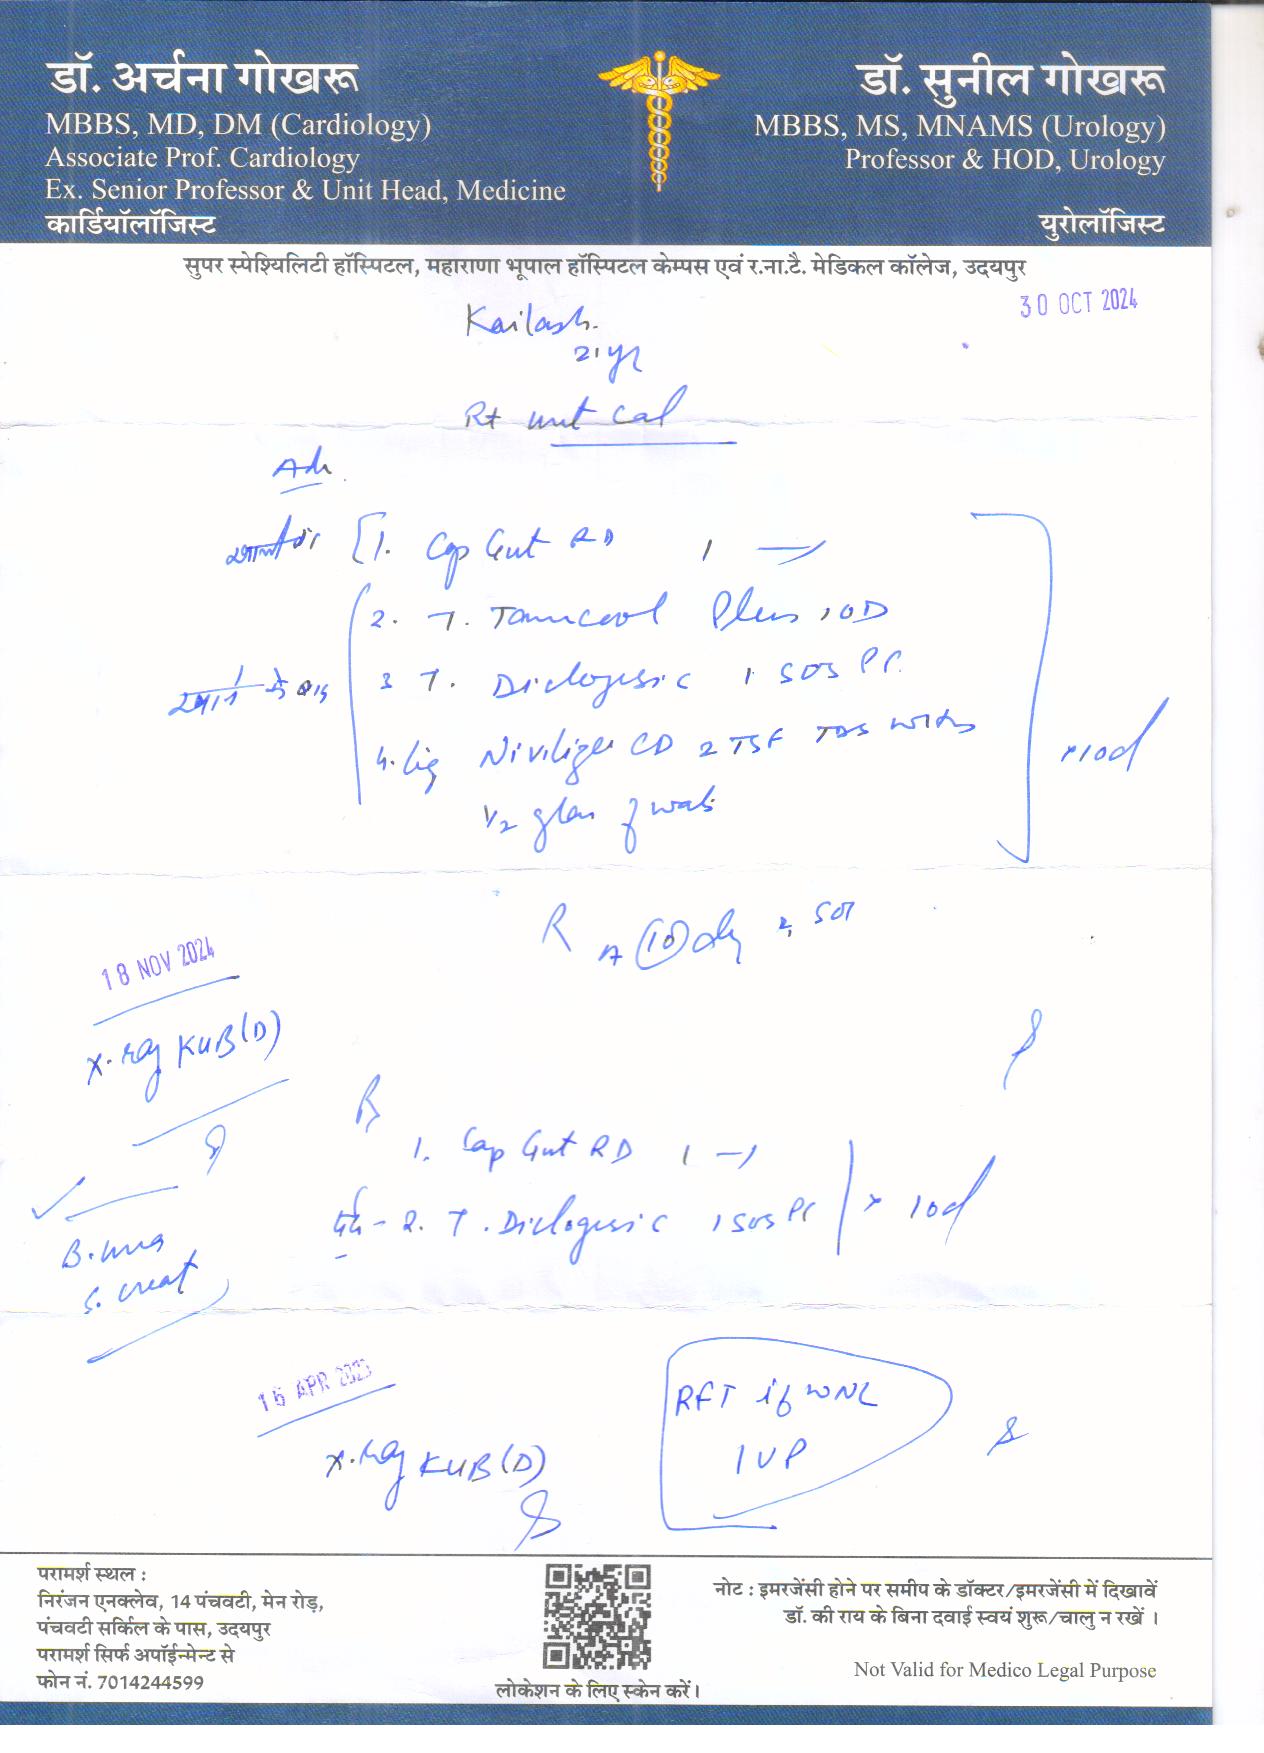 डॉ. अर्चना गोखरू
MBBS, MD, DM (Cardiology)
Associate Prof. Cardiology
Ex. Senior Professor & Unit Head, Medicine
कार्डियॉलॉजिस्ट
डॉ. सुनील गोखरू
MBBS, MS, MNAMS (Urology)
Professor & HOD, Urology
युरोलॉजिस्ट
सुपर स्पेश्यिलिटी हॉस्पिटल, महाराणा भूपाल हॉस्पिटल केम्पस एवं र.ना.टै. मेडिकल कॉलेज, उदयपुर
30 OCT 2024
Kailash.
21 yr
Rt cal
Adv.
1. Cap Gut RD 1
2. T. Plus 1 OD
3 T. Diclogesic 1 SOS PC
4. CD 2 TSF TDS with
1/2 glass of water
x 10d
R
A (10) day SOS
18 NOV 2024
X-ray KUB (D)
R
1. Cap Gut RD 1
दर्द - 2. T. Diclogesic 1 SOS PC
x 10d
B. urea
S. creat
16 APR
X-ray KUB (D)
RFT if WNL
IVP
परामर्श स्थल :
निरंजन एनक्लेव, 14 पंचवटी, मेन रोड़,
पंचवटी सर्किल के पास, उदयपुर
परामर्श सिर्फ अपॉईन्मेन्ट से
फोन नं. 7014244599
लोकेशन के लिए स्केन करें।
नोट : इमरजेंसी होने पर समीप के डॉक्टर/इमरजेंसी में दिखावें
डॉ. की राय के बिना दवाई स्वयं शुरू/चालु न रखें ।
Not Valid for Medico Legal Purpose